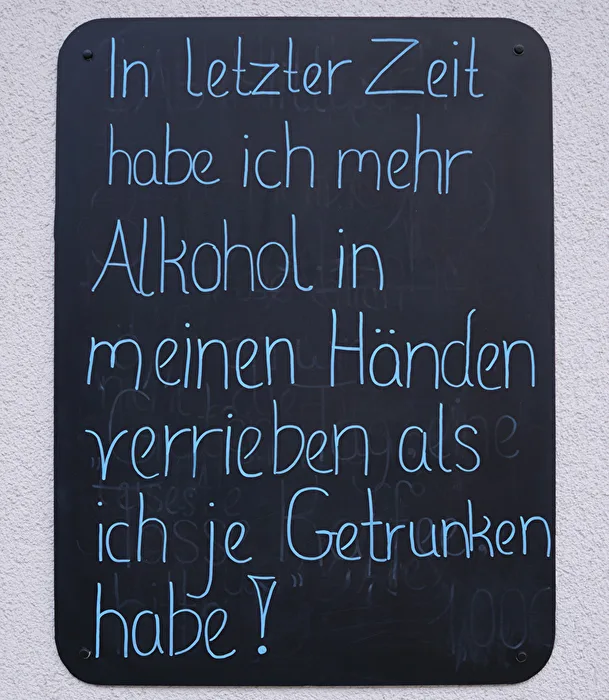 In letzter Zeit
habe ich mehr
Alkohol in
meinen Händen
verrieben als
ich je Getrunken
habe!